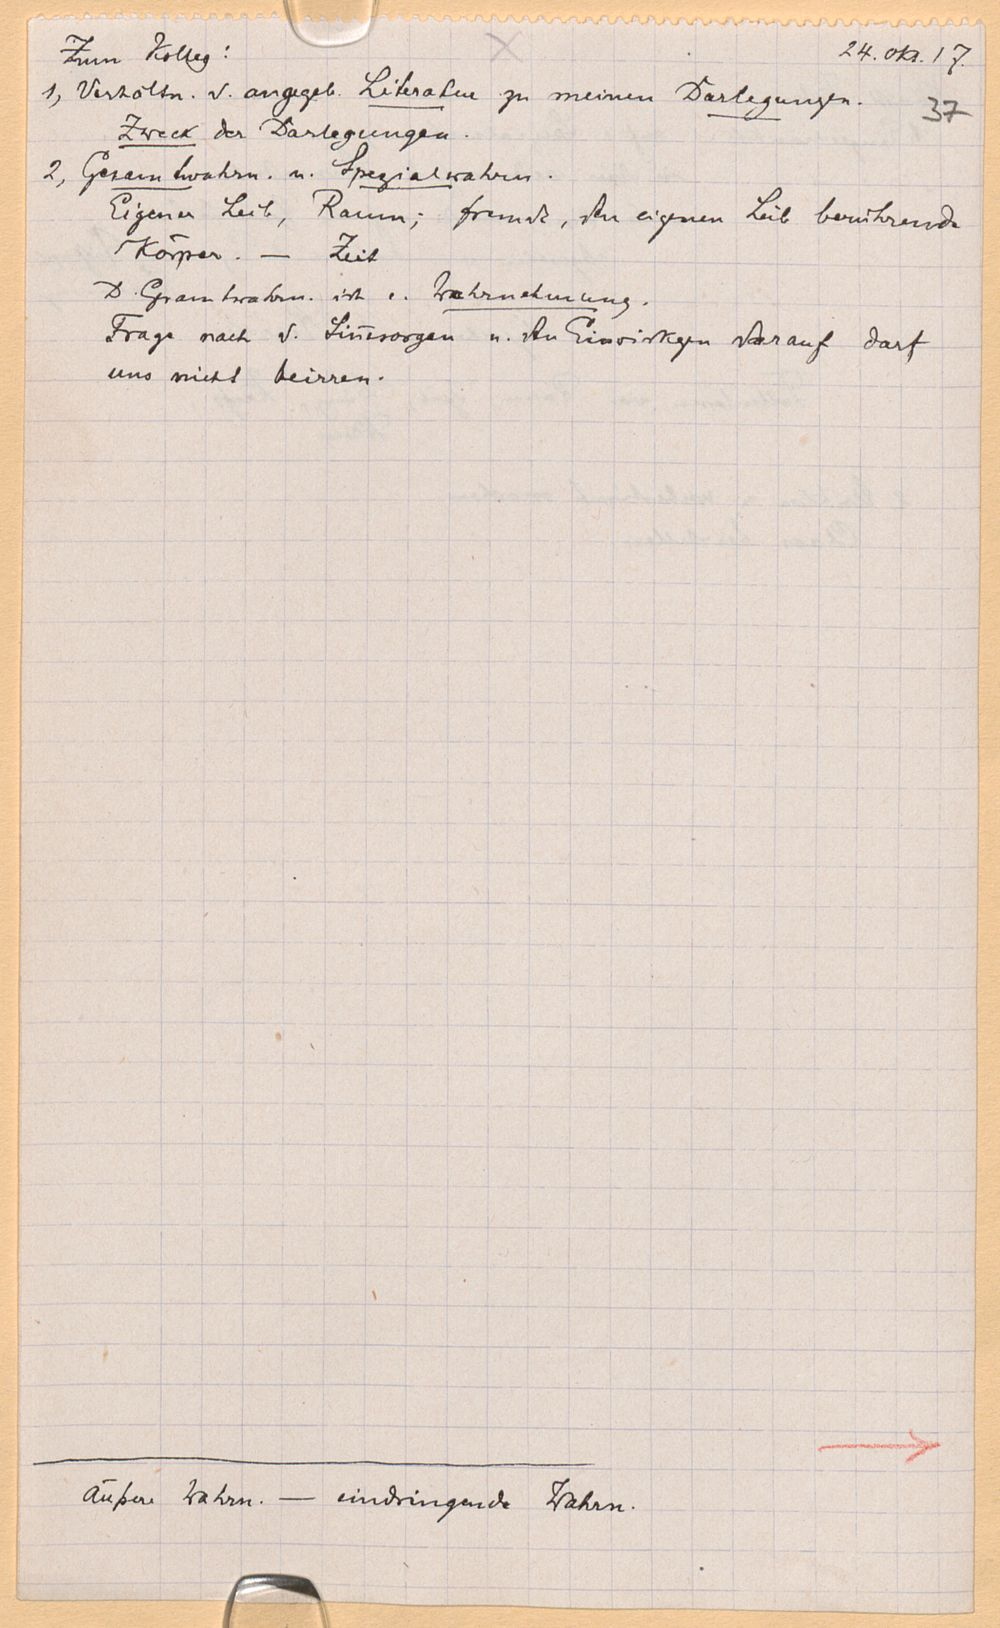 Zum Kolleg: 24. Okt. 17.
1, Verhältn. d. angegeb. Literatur zu meinen Darlegungen. 37
Zweck der Darlegungen.
2, Gesamtwahrn. u. Spezialwahrn.
Eigener Leib, Raum; fremde, den eigenen Leib berührende
Körper. — Zeit
D. Gesamtwahrn. ist e. Wahrnehmung.
Frage nach d. Sinnesorgan u. den Einwirkgen darauf darf
uns nicht beirren.
Äußere Wahrn. — eindringende Wahrn.